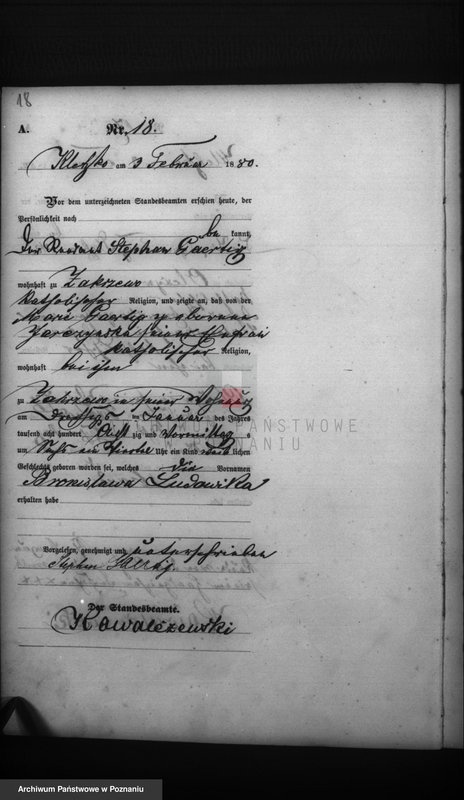 18
A. Nr. 18.
Kletzko am 3 Februar 1880.
Vor dem unterzeichneten Standesbeamten erschien heute, der
Persönlichkeit nach
be kannt,
Der Rendant Stephan Gaertig
wohnhaft zu Zakrzewo
katholischer Religion, und zeigte an, daß von der
Marie Gaertig geborenen
Jarczynska seiner Ehefrau
katholischer Religion,
wohnhaft bei ihm
zu Zakrzewo in seiner Wohnung
am Januar des Jahres
tausend acht hundert Acht zig und Vormittag s
um Uhr ein Kind weib lichen
Geschlechts geboren worden sei, welches die Vornamen
Bronislawa Ludowika
erhalten habe
Vorgelesen, genehmigt und unterschrieben
Stephan Gaertig.
Der Standesbeamte.
Kowalczewski
ARCHIWUM PAŃSTWOWE
W POZNANIU
Archiwum Państwowe w Poznaniu